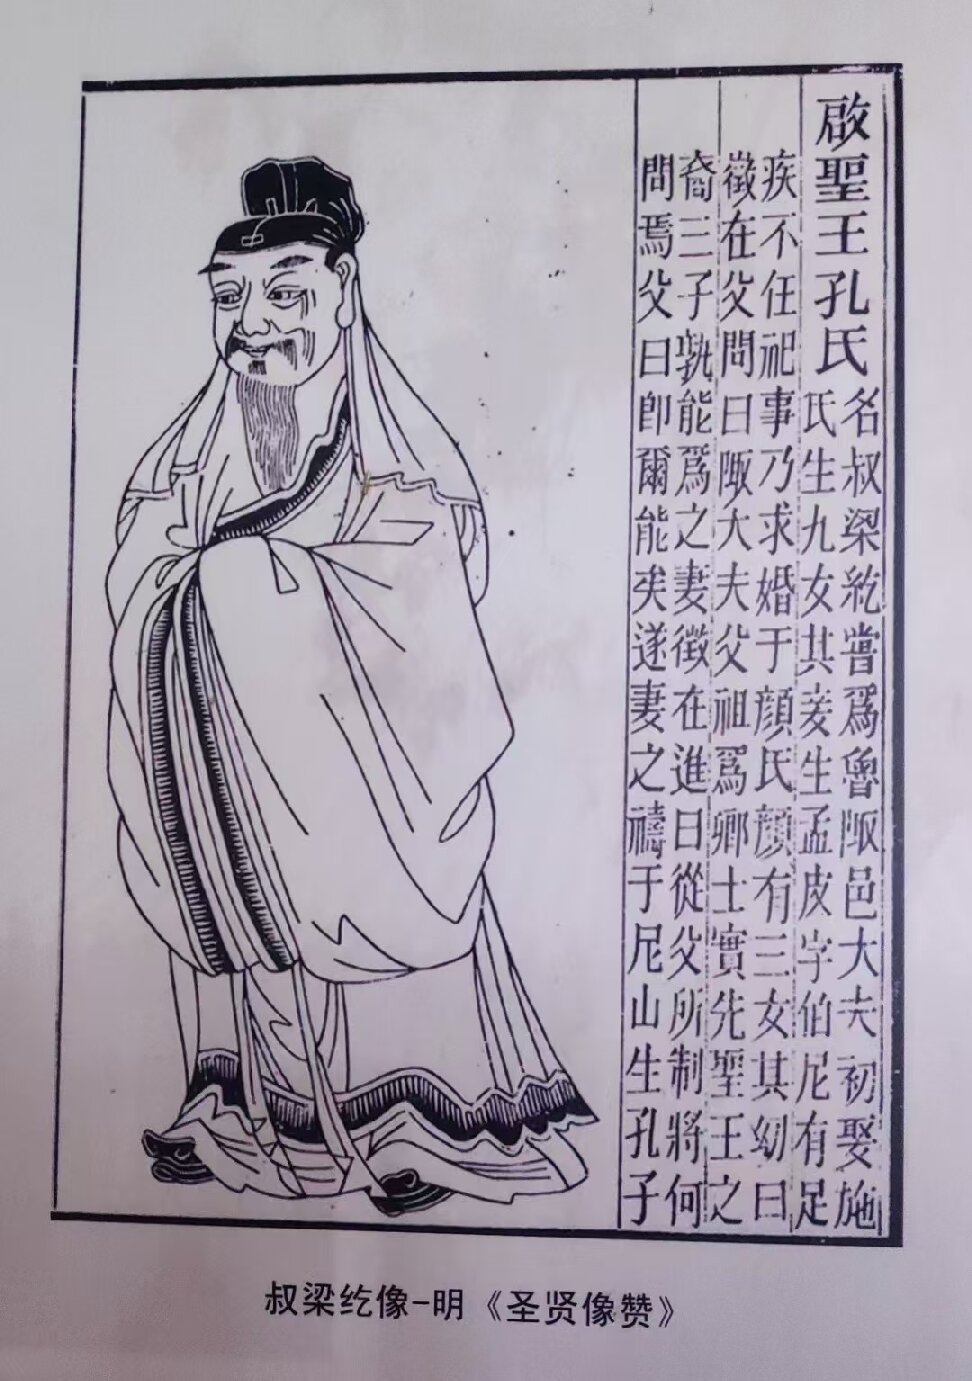 啟聖王孔氏
名叔梁紇嘗爲魯陬邑大夫初娶施
氏生九女其妾生孟皮字伯尼有足
疾不任祀事乃求婚于顔氏顔有三女其幼曰
徵在父問曰陬大夫父祖爲卿士實先聖王之
裔三子孰能爲之妻徵在進曰從父所制將何
問焉父曰卽爾能矣遂妻之禱于尼山生孔子
叔梁纥像-明《圣贤像赞》